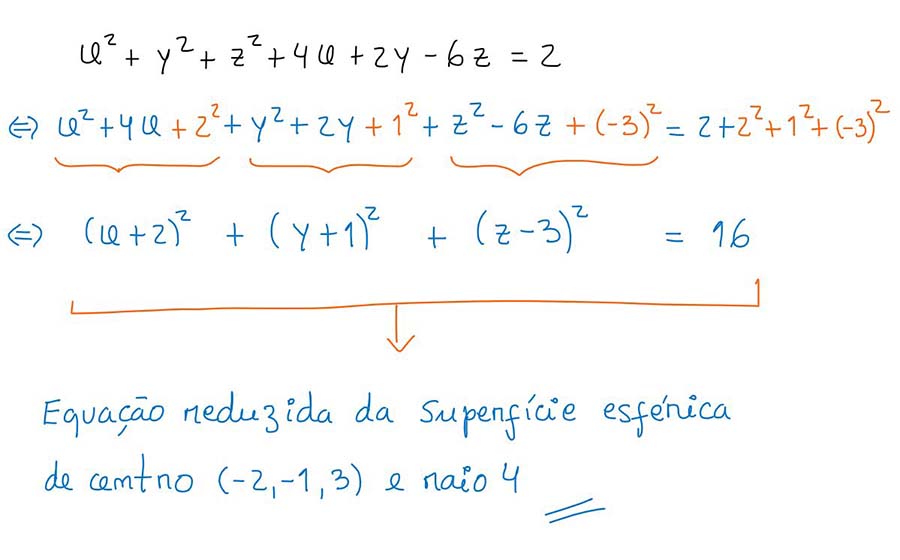 x² + y² + z² + 4x + 2y - 6z = 2
⇔ x² + 4x + 2² + y² + 2y + 1² + z² - 6z + (-3)² = 2 + 2² + 1² + (-3)²
⇔ (x+2)² + (y+1)² + (z-3)² = 16
Equação reduzida da superfície esférica
de centro (-2,-1,3) e raio 4